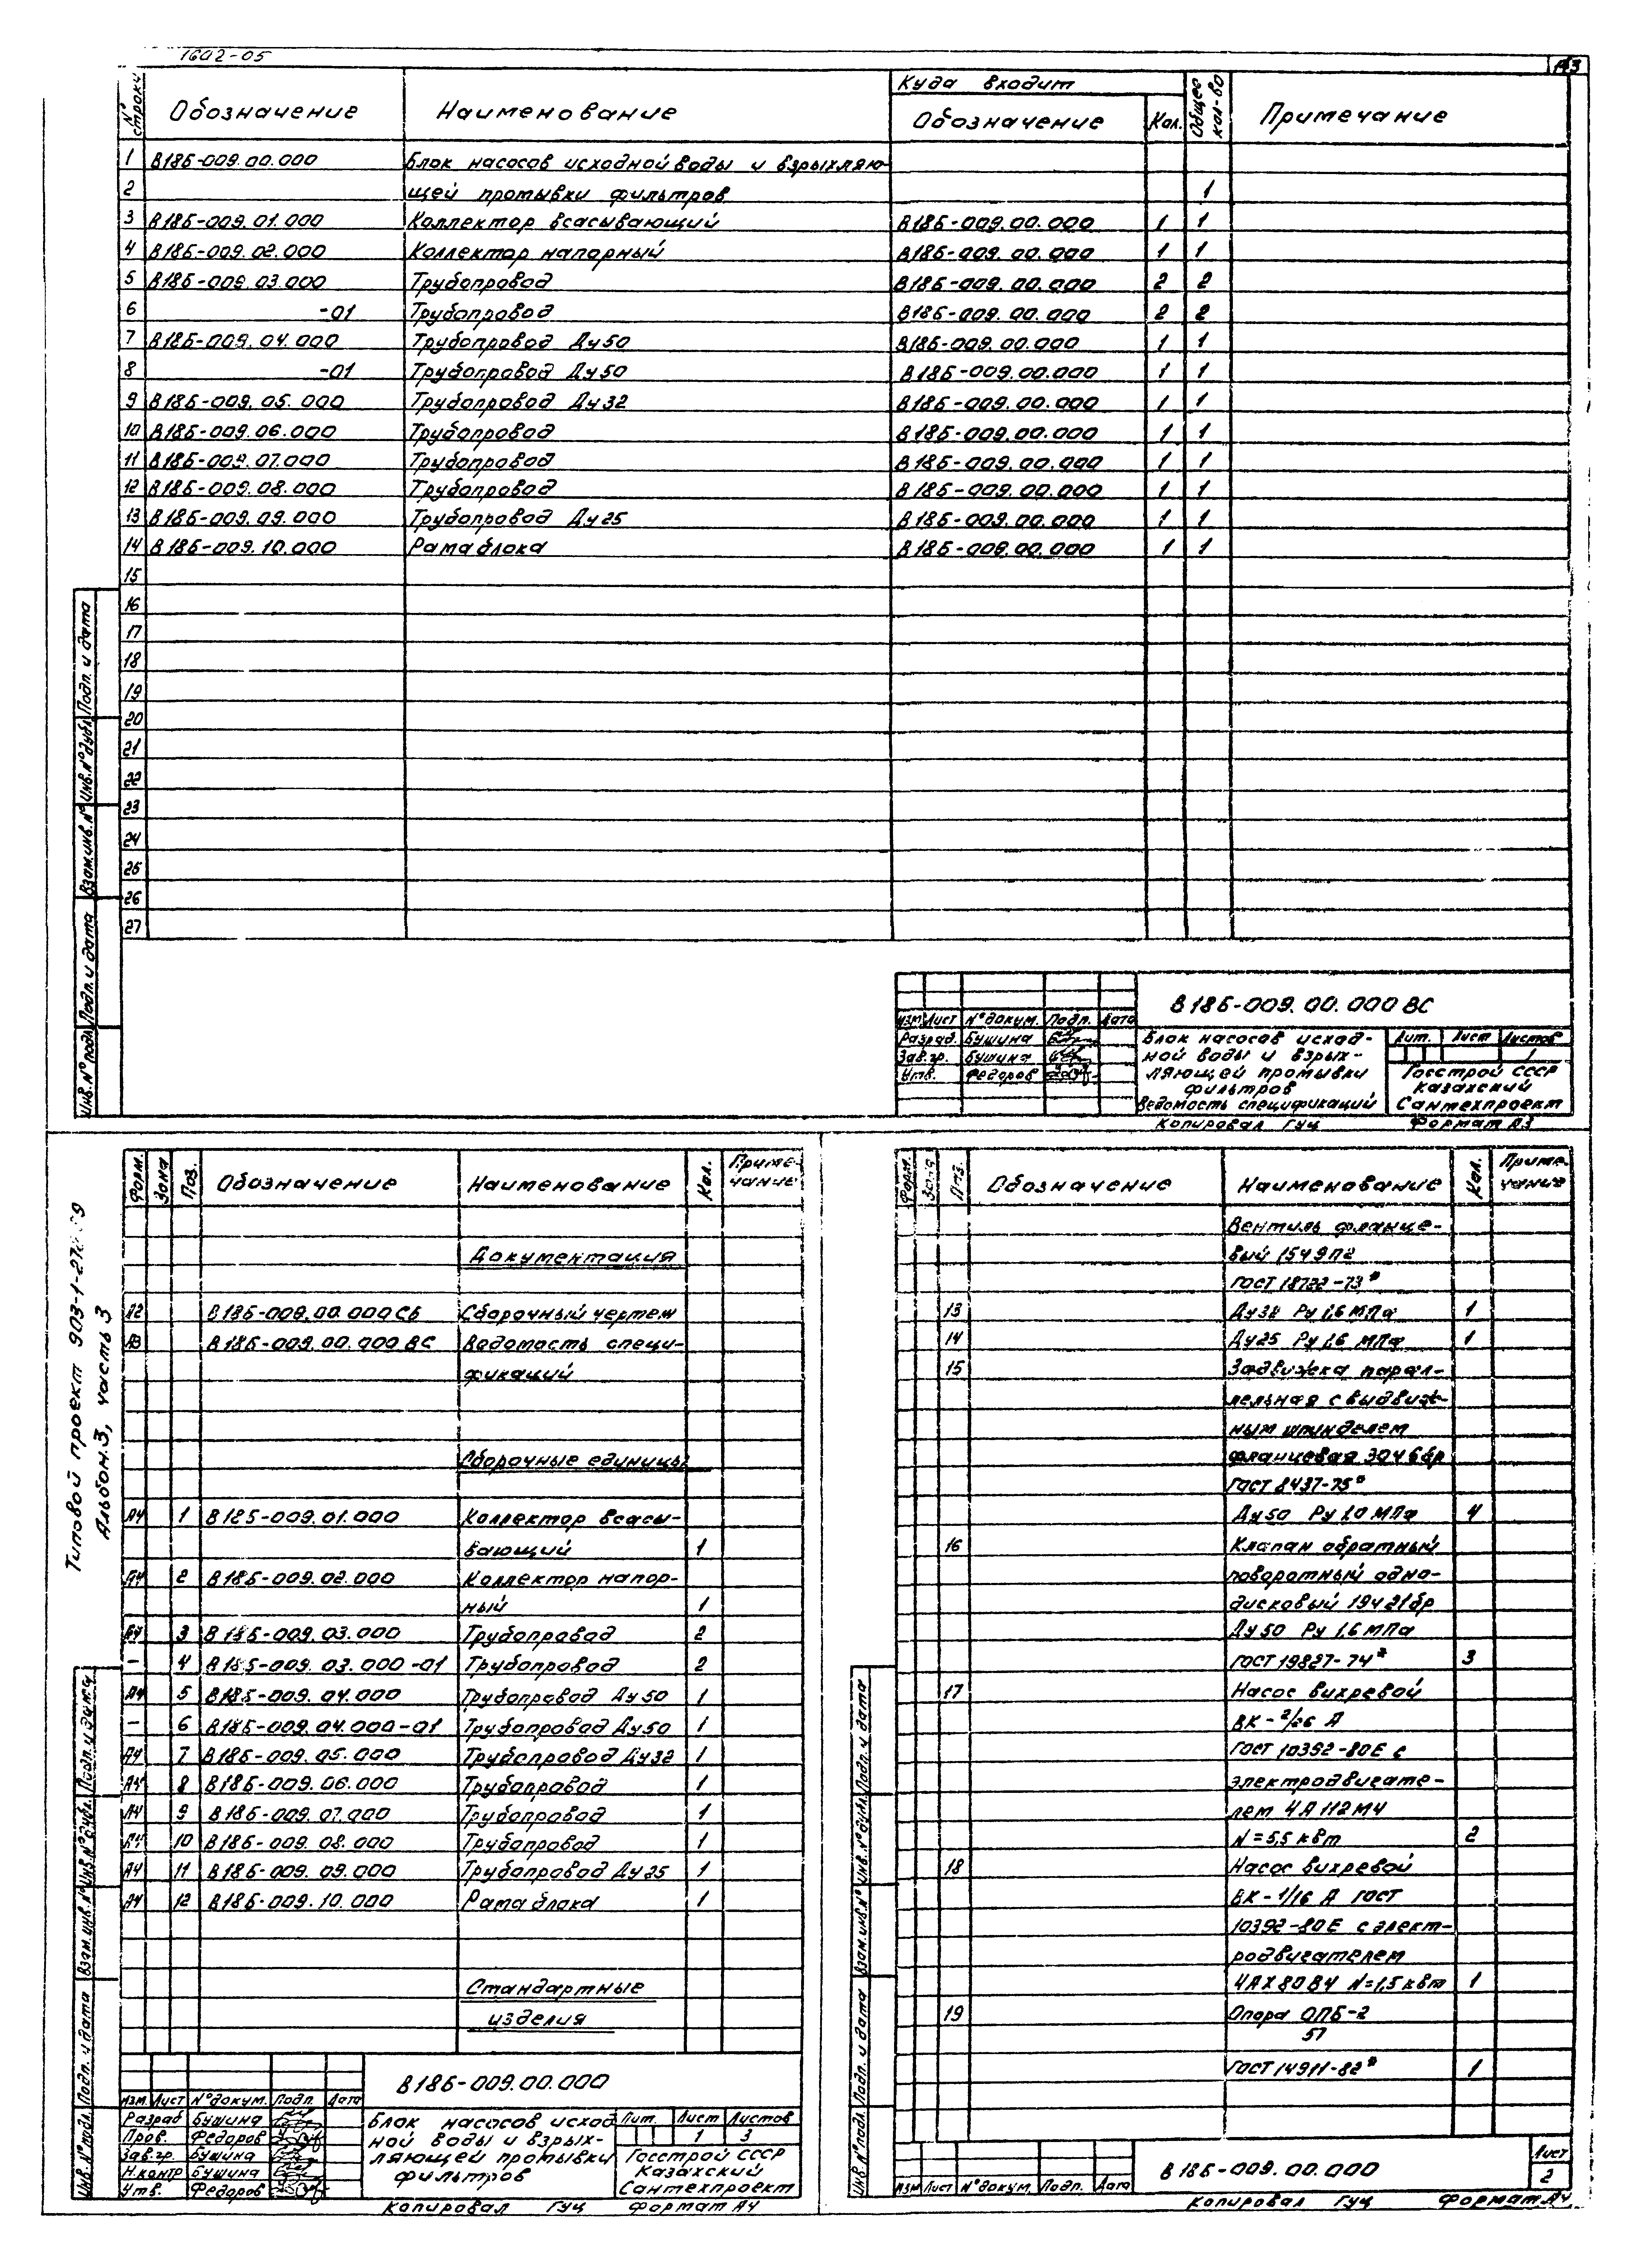 1602-05
А3
№ строки Обозначение Наименование Куда входит Общее кол-во Примечание
Обозначение Кол.
1 В18Б-009.00.000 Блок насосов исходной воды и взрыхляю-
2 щей промывки фильтров 1
3 В18Б-009.01.000 Коллектор всасывающий В18Б-009.00.000 1 1
4 В18Б-009.02.000 Коллектор напорный В18Б-009.00.000 1 1
5 В18Б-009.03.000 Трубопровод В18Б-009.00.000 2 2
6 -01 Трубопровод В18Б-009.00.000 2 2
7 В18Б-009.04.000 Трубопровод Ду50 В18Б-009.00.000 1 1
8 -01 Трубопровод Ду50 В18Б-009.00.000 1 1
9 В18Б-009.05.000 Трубопровод Ду32 В18Б-009.00.000 1 1
10 В18Б-009.06.000 Трубопровод В18Б-009.00.000 1 1
11 В18Б-009.07.000 Трубопровод В18Б-009.00.000 1 1
12 В18Б-009.08.000 Трубопровод В18Б-009.00.000 1 1
13 В18Б-009.09.000 Трубопровод Ду25 В18Б-009.00.000 1 1
14 В18Б-009.10.000 Рама блока В18Б-009.00.000 1 1
15
16
17
18
19
20
21
22
23
24
25
26
27
Инв.№ подл. Подп. и дата Взам.инв.№ Инв.№ дубл. Подп. и дата
В18Б-009.00.000 ВС
Изм Лист №докум. Подп. Дата
Разраб. Бушина
Зав.гр. Бушина
Утв. Федоров
Блок насосов исход-
ной воды и взрых-
ляющей промывки
фильтров
Ведомость спецификаций
Лит. Лист Листов
1
Госстрой СССР
Казахский
Сантехпроект
Копировал ГУЦ Формат А3
Типовой проект 903-1-
Альбом.3, часть 3
Форм. Зона Поз. Обозначение Наименование Кол. Приме-
чание
Документация
А2 В18Б-009.00.000 СБ Сборочный чертеж
А3 В18Б-009.00.000 ВС Ведомость специ-
фикаций
Сборочные единицы
А4 1 В18Б-009.01.000 Коллектор всасы-
вающий 1
А4 2 В18Б-009.02.000 Коллектор напор-
ный 1
А4 3 В18Б-009.03.000 Трубопровод 2
- 4 В18Б-009.03.000-01 Трубопровод 2
А4 5 В18Б-009.04.000 Трубопровод Ду50 1
- 6 В18Б-009.04.000-01 Трубопровод Ду50 1
А4 7 В18Б-009.05.000 Трубопровод Ду32 1
А4 8 В18Б-009.06.000 Трубопровод 1
А4 9 В18Б-009.07.000 Трубопровод 1
А4 10 В18Б-009.08.000 Трубопровод 1
А4 11 В18Б-009.09.000 Трубопровод Ду25 1
А4 12 В18Б-009.10.000 Рама блока 1
Стандартные
изделия
Инв.№ подл. Подп. и дата Взам.инв.№ Инв.№ дубл. Подп. и дата
В18Б-009.00.000
Изм. Лист №докум. Подп. Дата
Разраб Бушина
Пров. Федоров
Зав.гр. Бушина
Н.контр Бушина
Утв. Федоров
Блок насосов исход
ной воды и взрых-
ляющей промывки
фильтров
Лит. Лист Листов
1 3
Госстрой СССР
Казахский
Сантехпроект
Копировал ГУЦ Формат А4
Форм. Зона Поз. Обозначение Наименование Кол. Приме-
чание
Вентиль фланце-
вый 15ч9п2
ГОСТ 18722-73*
13 Ду32 Ру 1,6 МПа 1
14 Ду25 Ру 1,6 МПа 1
15 Задвижка парал-
лельная с выдвиж-
ным шпинделем
фланцевая 30ч6бр
ГОСТ 8437-75*
Ду50 Ру 1,0 МПа 4
16 Клапан обратный
поворотный одно-
дисковый 19ч21бр
Ду50 Ру 1,6 МПа
ГОСТ 19827-74* 3
17 Насос вихревой
ВК-2/26 А
ГОСТ 10392-80Е с
электродвигате-
лем 4А112М4
N=5,5 квт 2
18 Насос вихревой
ВК-1/16 А ГОСТ
10392-80Е с элект-
родвигателем
4АХ80В4 N=1,5 квт 1
19 Опора ОПБ-2
57
ГОСТ 14911-82* 1
Инв.№ подл. Подп. и дата Взам.инв.№ Инв.№ дубл. Подп. и дата
Изм Лист №докум. Подп. Дата
В18Б-009.00.000
Лист
2
Копировал ГУЦ Формат А4